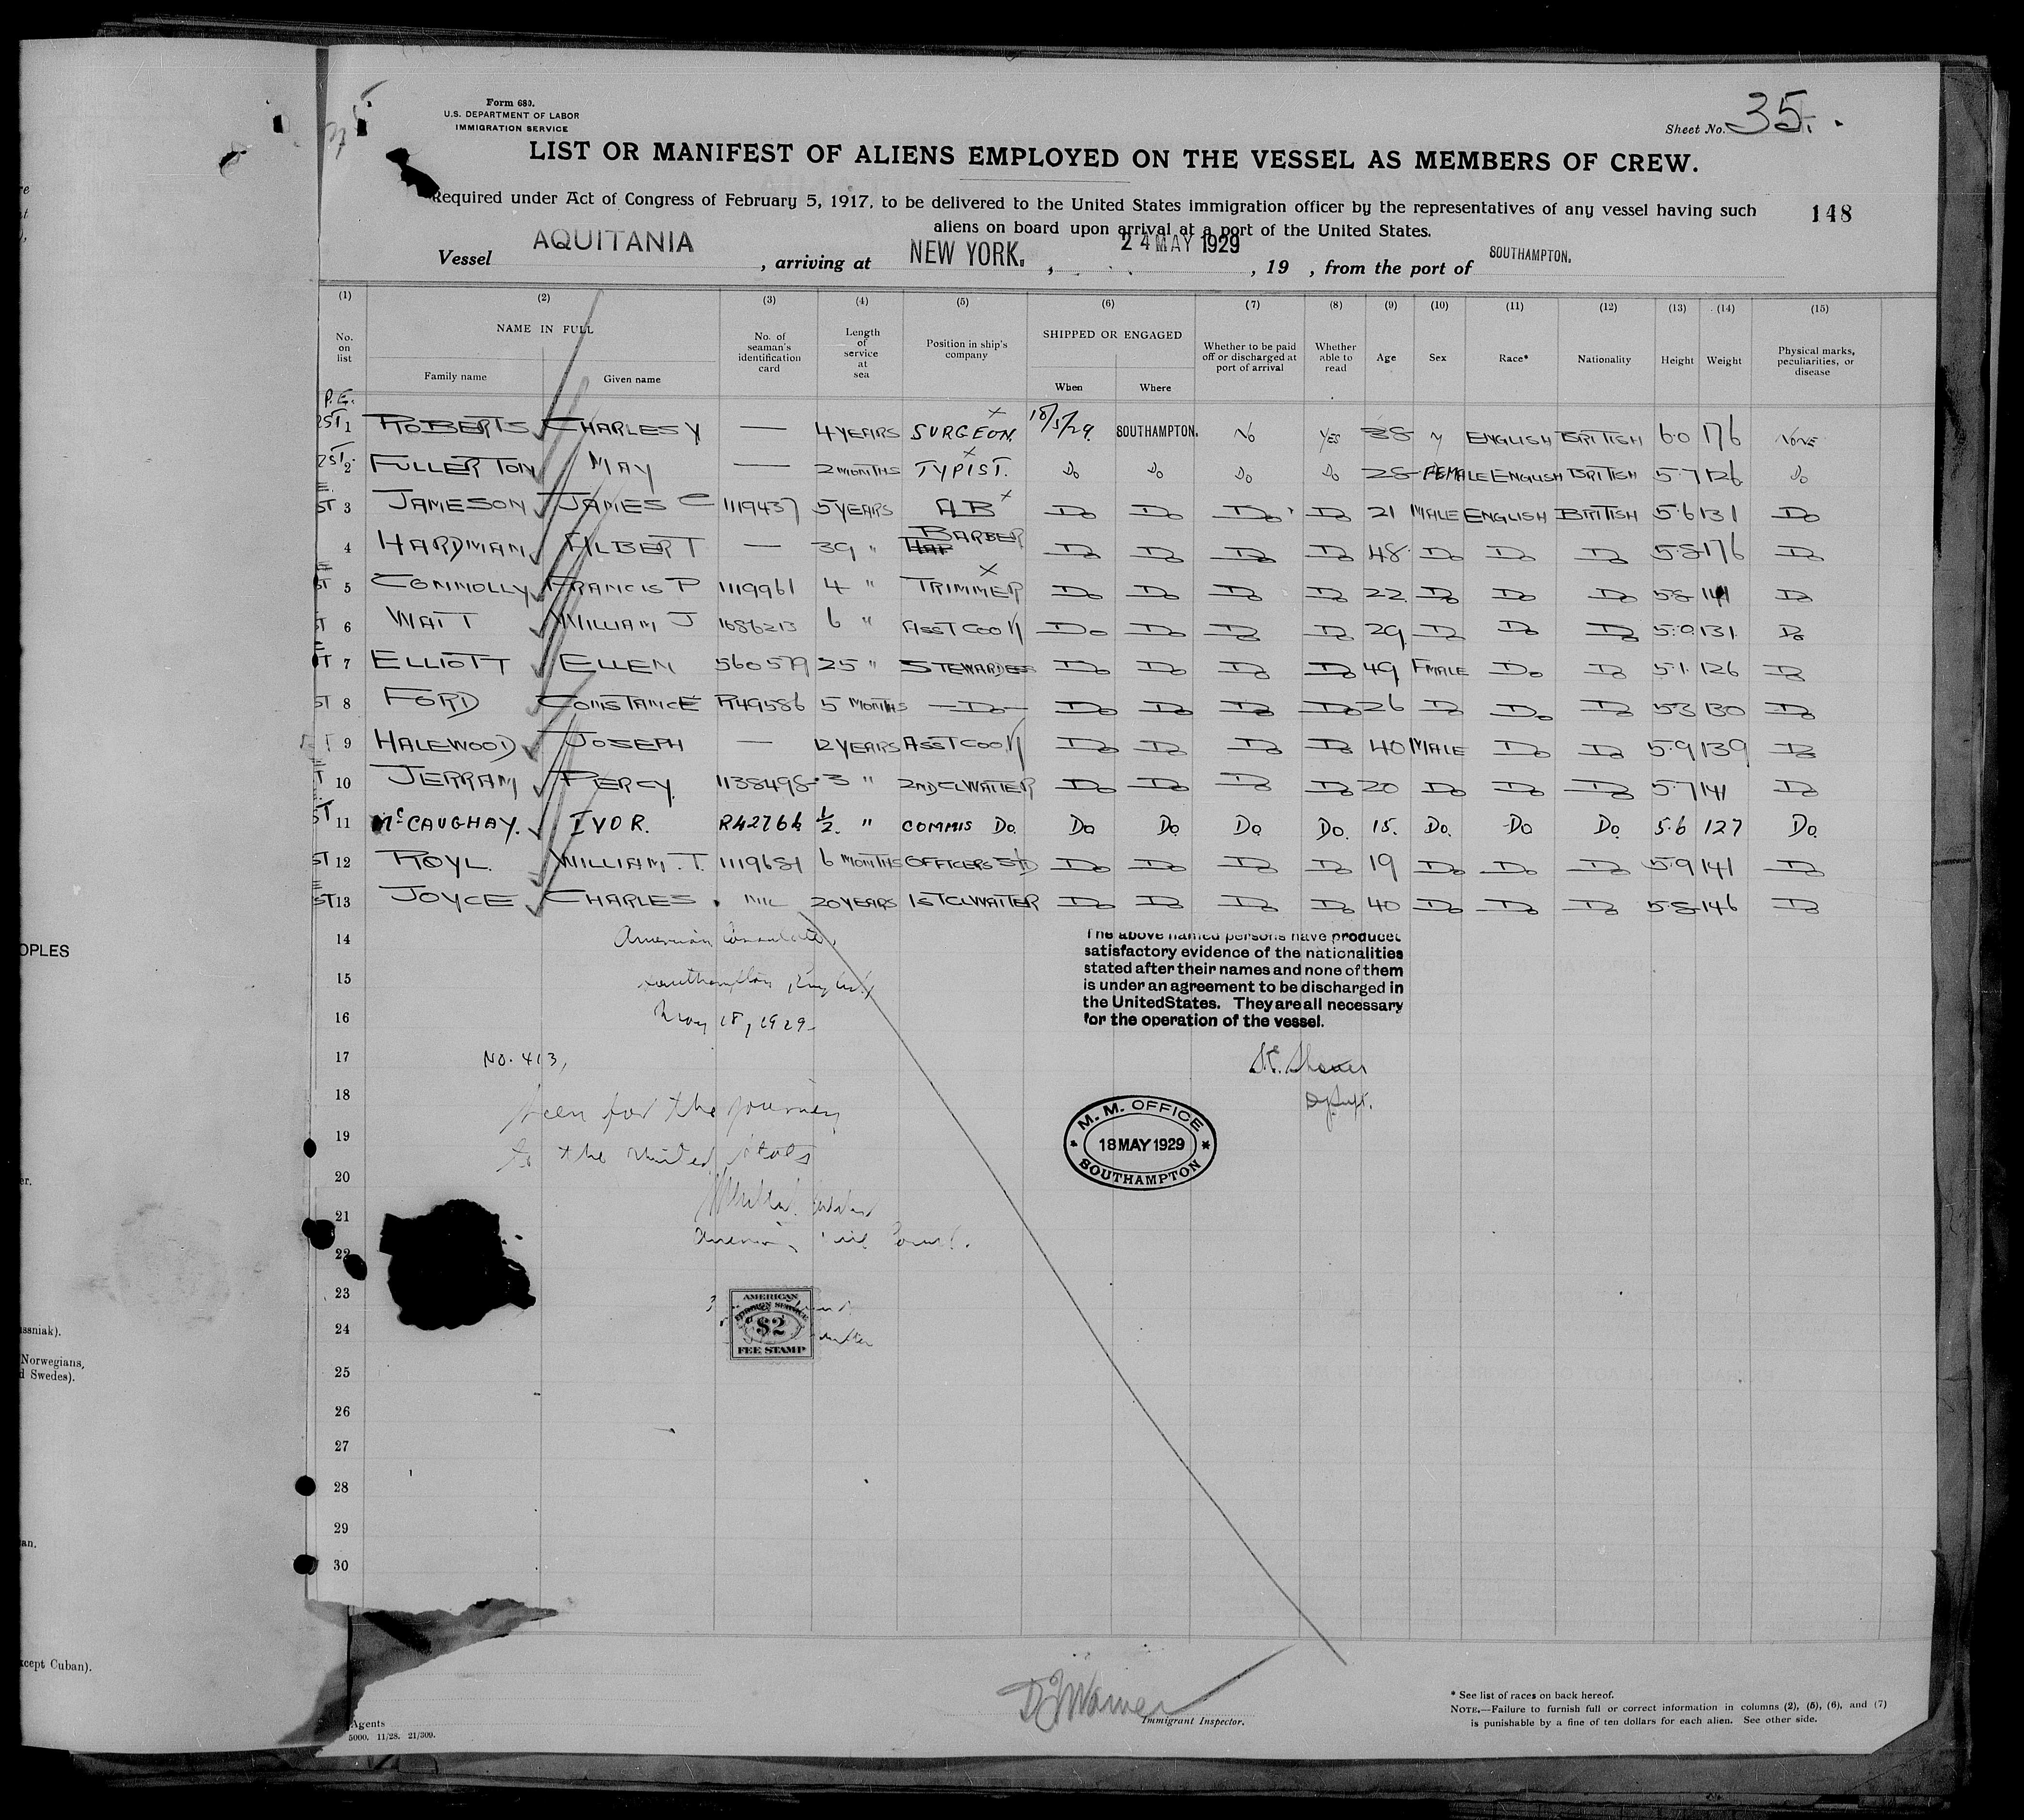 Form 680.
U.S. DEPARTMENT OF LABOR
IMMIGRATION SERVICE
Sheet No. 35.
LIST OR MANIFEST OF ALIENS EMPLOYED ON THE VESSEL AS MEMBERS OF CREW.
Required under Act of Congress of February 5, 1917, to be delivered to the United States immigration officer by the representatives of any vessel having such
aliens on board upon arrival at a port of the United States.
148
Vessel AQUITANIA, arriving at NEW YORK., 24 MAY 1929, 19 , from the port of SOUTHAMPTON.
(1) (2) (3) (4) (5) (6) (7) (8) (9) (10) (11) (12) (13) (14) (15)
No. on list NAME IN FULL Family name Given name No. of seaman's identification card Length of service at sea Position in ship's company SHIPPED OR ENGAGED When Where Whether to be paid off or discharged at port of arrival Whether able to read Age Sex Race* Nationality Height Weight Physical marks, peculiarities, or disease
P.E.
1 ROBERTS CHARLES Y — 4 YEARS SURGEON. 18/5/29. SOUTHAMPTON. No YES 38 M ENGLISH BRITISH 6.0 176 NONE
2 FULLERTON MAY — 2 MONTHS TYPIST. Do Do Do Do 28 FEMALE ENGLISH BRITISH 5.7 126 Do
ST 3 JAMESON JAMES C 1119437 5 YEARS AB Do Do Do Do 21 MALE ENGLISH BRITISH 5.6 131 Do
4 HARDMAN ALBERT — 39 " BARBER Do Do Do Do 48 Do Do Do 5.8 176 Do
ST 5 CONNOLLY FRANCIS P 1119961 4 " TRIMMER Do Do Do Do 22 Do Do Do 5.8 141 Do
ST 6 WATT WILLIAM J 1086213 6 " ASST COOK Do Do Do Do 29 Do Do Do 5.0 131 Do
ST 7 ELLIOTT ELLEN 560579 25 " STEWARDESS Do Do Do Do 49 FMALE Do Do 5.1. 126 Do
ST 8 FORD CONSTANCE R49586 5 MONTHS —Do— Do Do Do Do 26 Do Do Do 5.3 130 Do
9 HALEWOOD JOSEPH — 12 YEARS ASST COOK Do Do Do Do 40 MALE Do Do 5.9 139 Do
10 JERRAM PERCY. 1138498 3 " 2ND CL WAITER Do Do Do Do 20 Do Do Do 5.7 141 Do
ST 11 McCAUGHAY. IVOR. R42766 ½ " COMMIS Do. Do Do Do Do. 15. Do. Do Do. 5.6 127 Do.
ST 12 ROYL. WILLIAM. T. 1119681 6 MONTHS OFFICERS STD Do Do Do Do 19 Do Do Do 5.9 141 Do
ST 13 JOYCE CHARLES NIL 20 YEARS 1ST CL WAITER Do Do Do Do 40 Do Do Do 5.8 146 Do
14 American Consulate,
15 Southampton, England
16 May 18, 1929
The above named persons have produced
satisfactory evidence of the nationalities
stated after their names and none of them
is under an agreement to be discharged in
the United States. They are all necessary
for the operation of the vessel.
17 No. 413,
18 Seen for the journey
Dy Supt.
19 to the United States
M. M. OFFICE
18 MAY 1929
SOUTHAMPTON
20
21
22 American Vice Consul.
23
24
AMERICAN
FOREIGN SERVICE
$2
FEE STAMP
25
26
27
28
29
30
Immigrant Inspector.
* See list of races on back hereof.
NOTE.—Failure to furnish full or correct information in columns (2), (5), (6), and (7)
is punishable by a fine of ten dollars for each alien. See other side.
Agents
5000. 11/28. 21/309.
OPLES
ssniak).
Norwegians,
d Swedes).
an.
xcept Cuban).